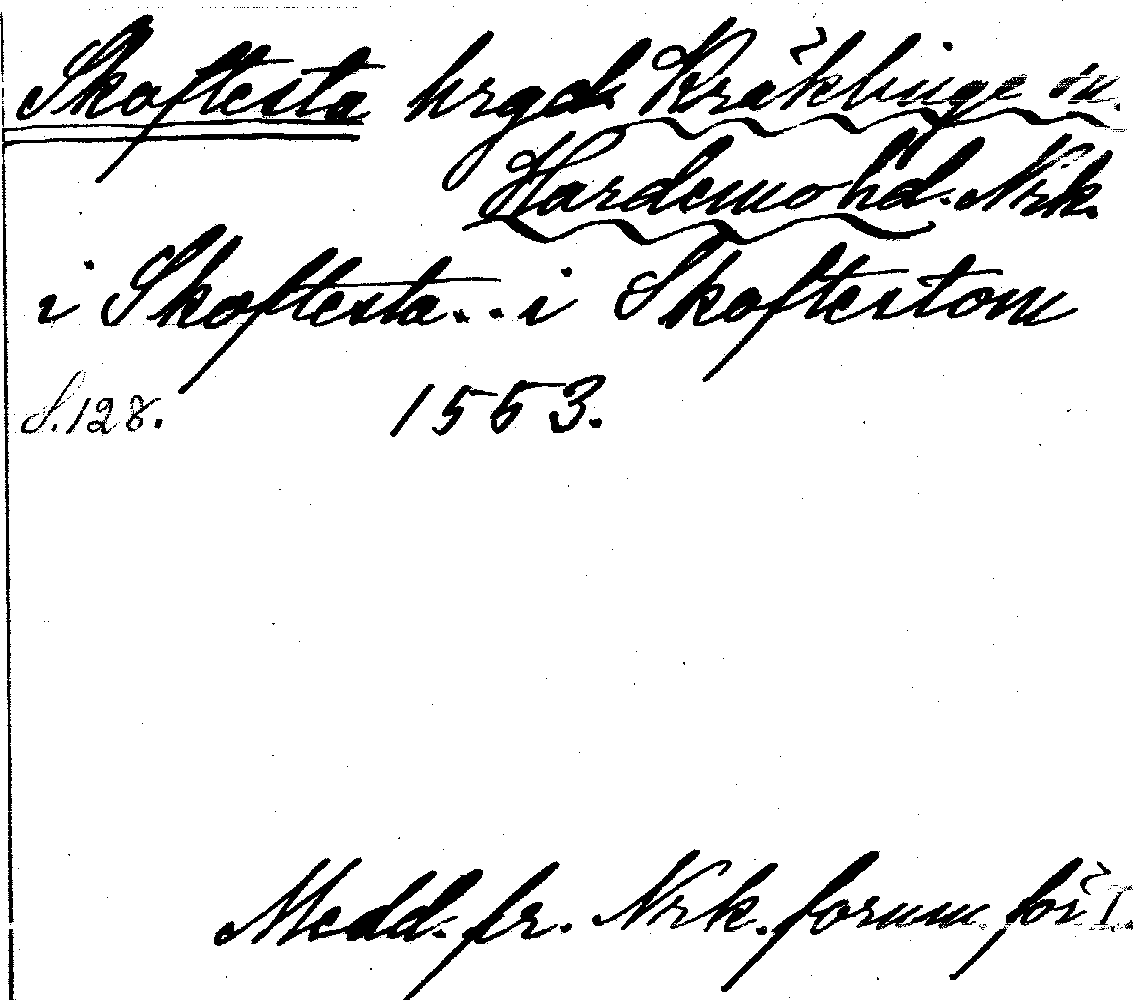 Skoftesta hrgd. Kräklinge sn.
Hardemo hd. Nrk.
i Skoftesta.. i Skoftestom
S. 128. 1553.
Medd. fr. Nrk. fornm. för I.